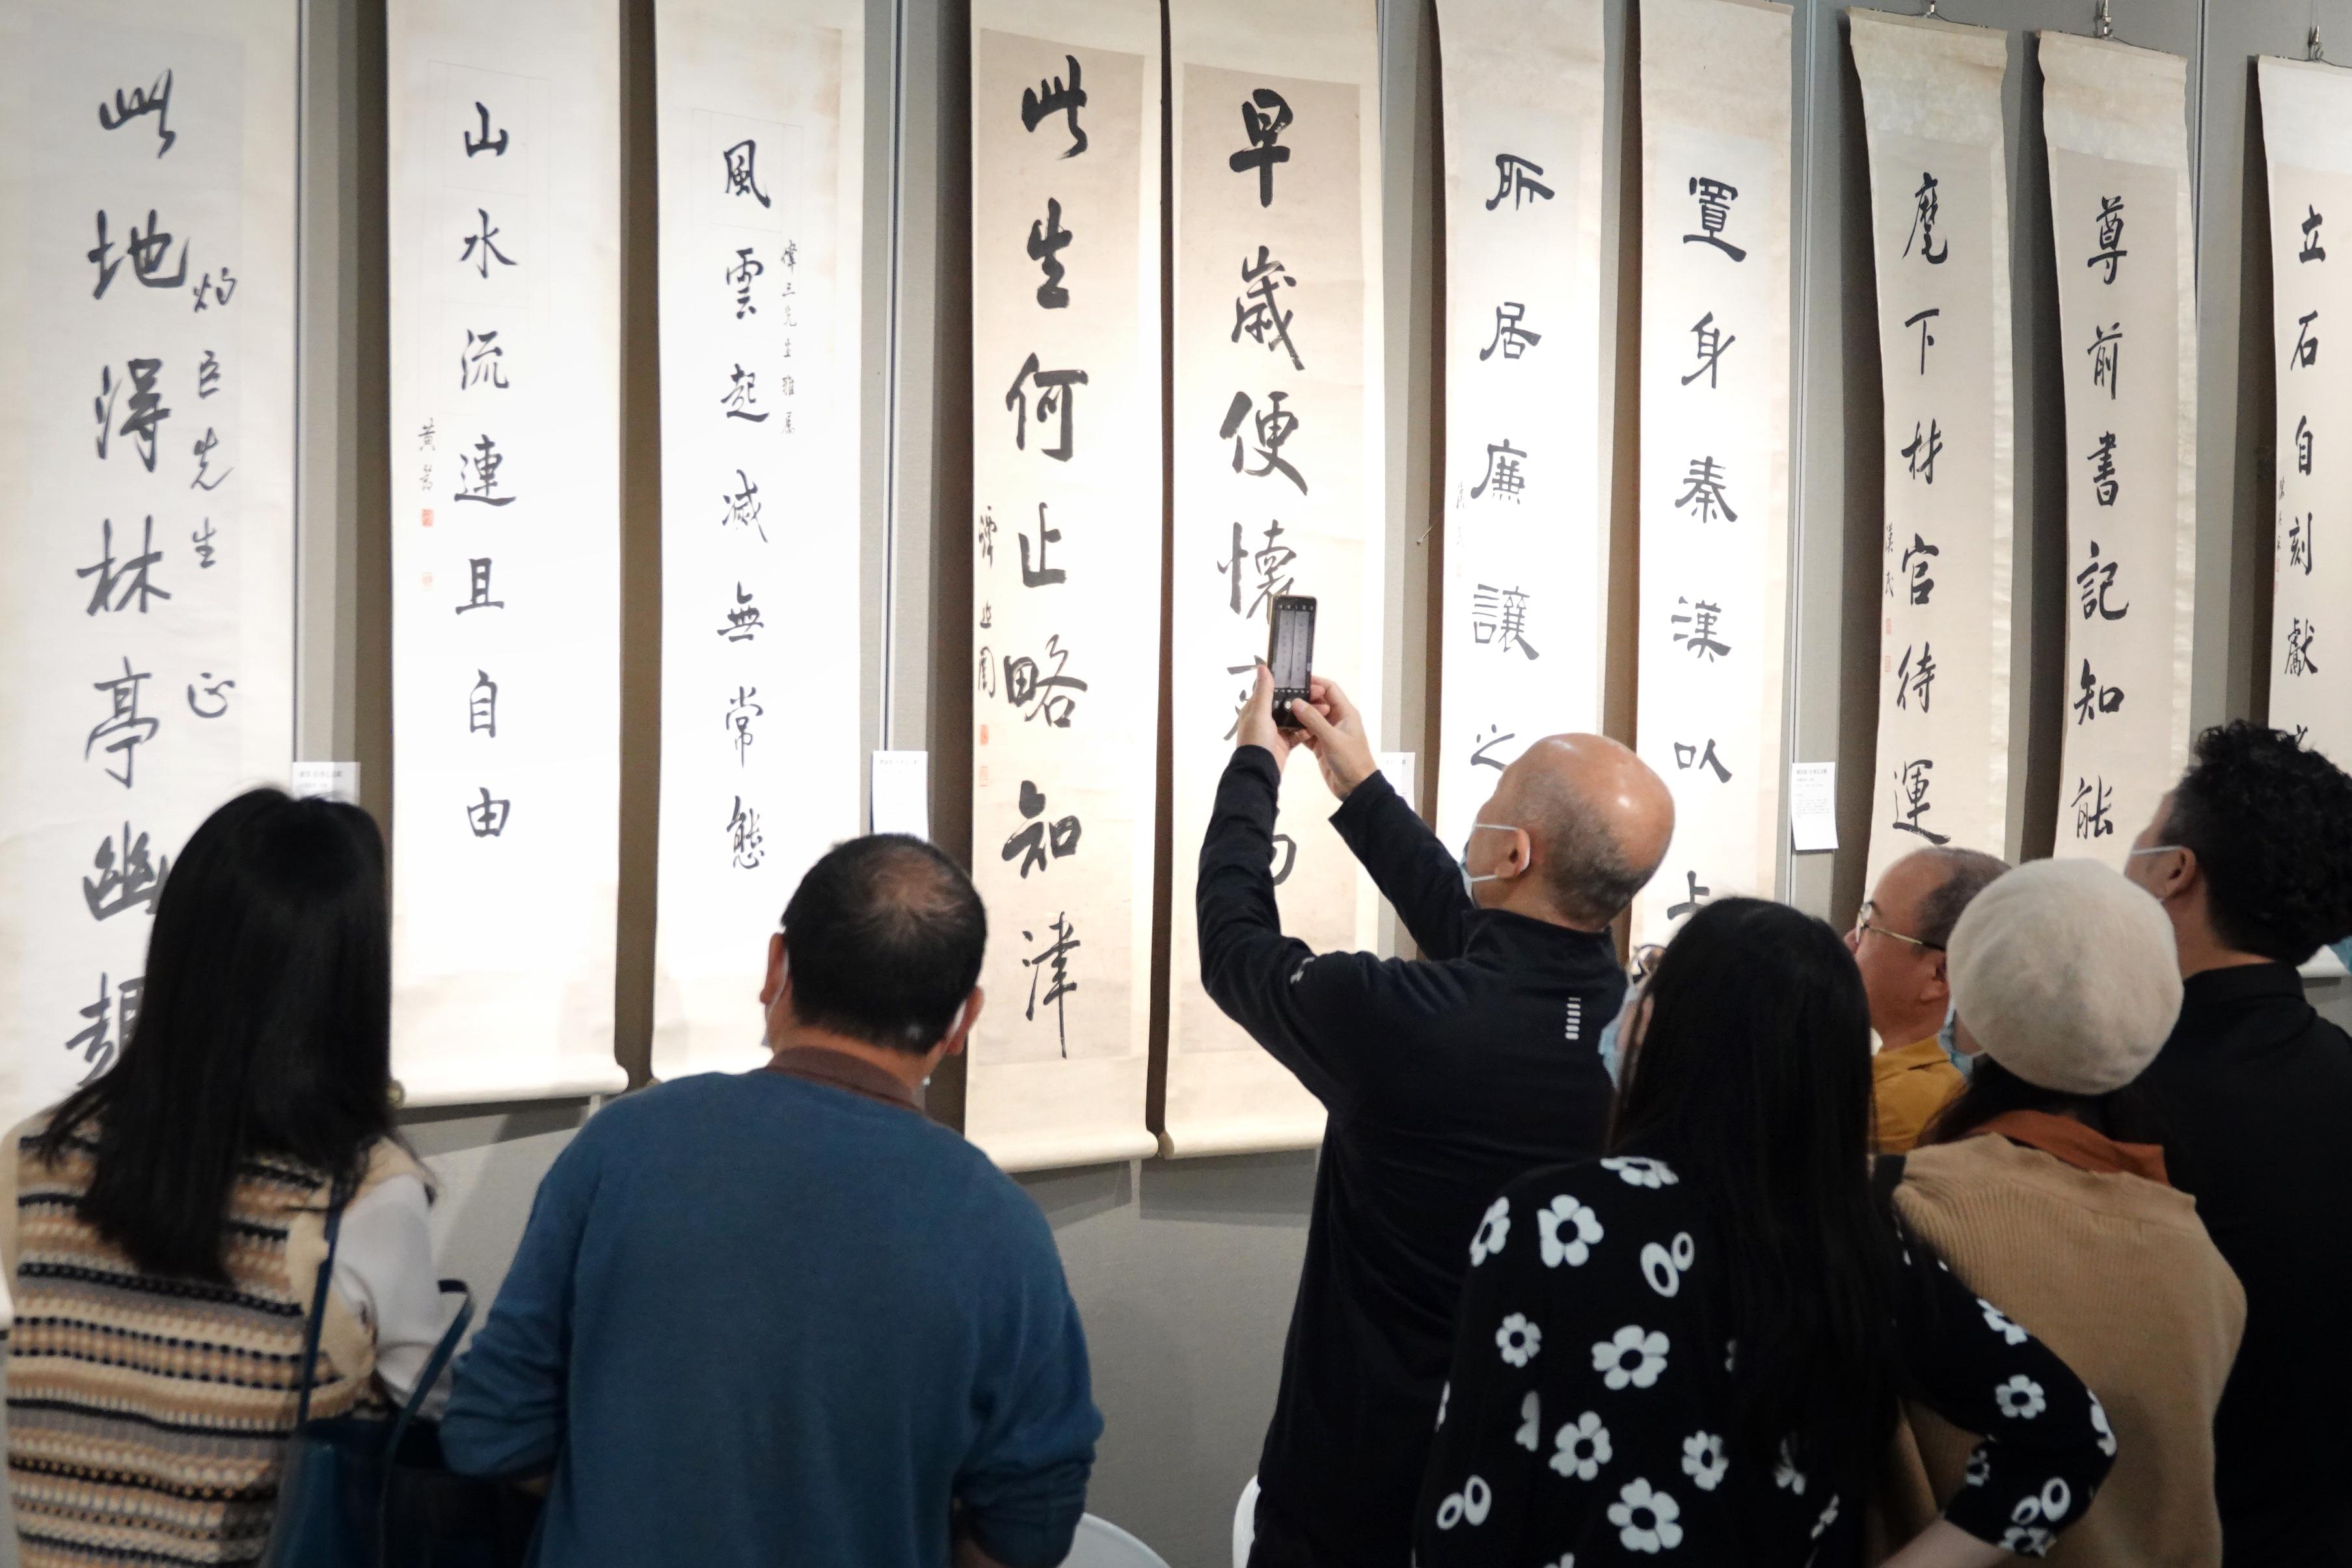 立石自刻獻
尊前書記知能
麾下材官待運
漢民
置身秦漢以上
所居廉讓之
早歲便懷
此生何止略知津
譚延闓
偉三先生雅屬
風雲起滅無常態
山水流連且自由
黃
灼臣先生正
此地得林亭幽